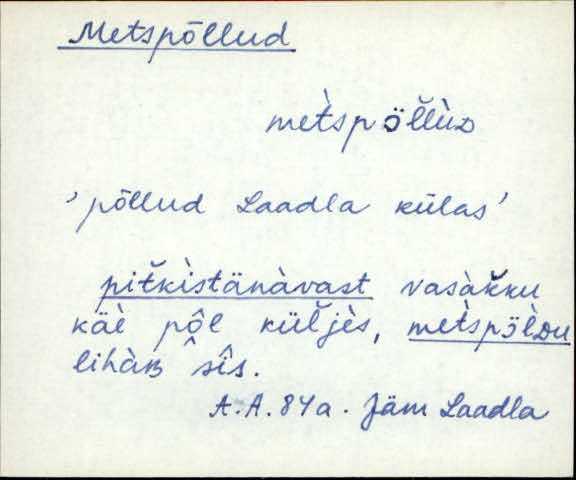 Metspõllud
mètspö̆l̆lùᴅ
'põllud Laadla külas'
pĭt̆kìstänàvast vasàk̆ku
käè pô̭l kül̆jès, mètspö̆lᴅu
lihàʙ sîs.
A.A. 84a. Jäm Laadla